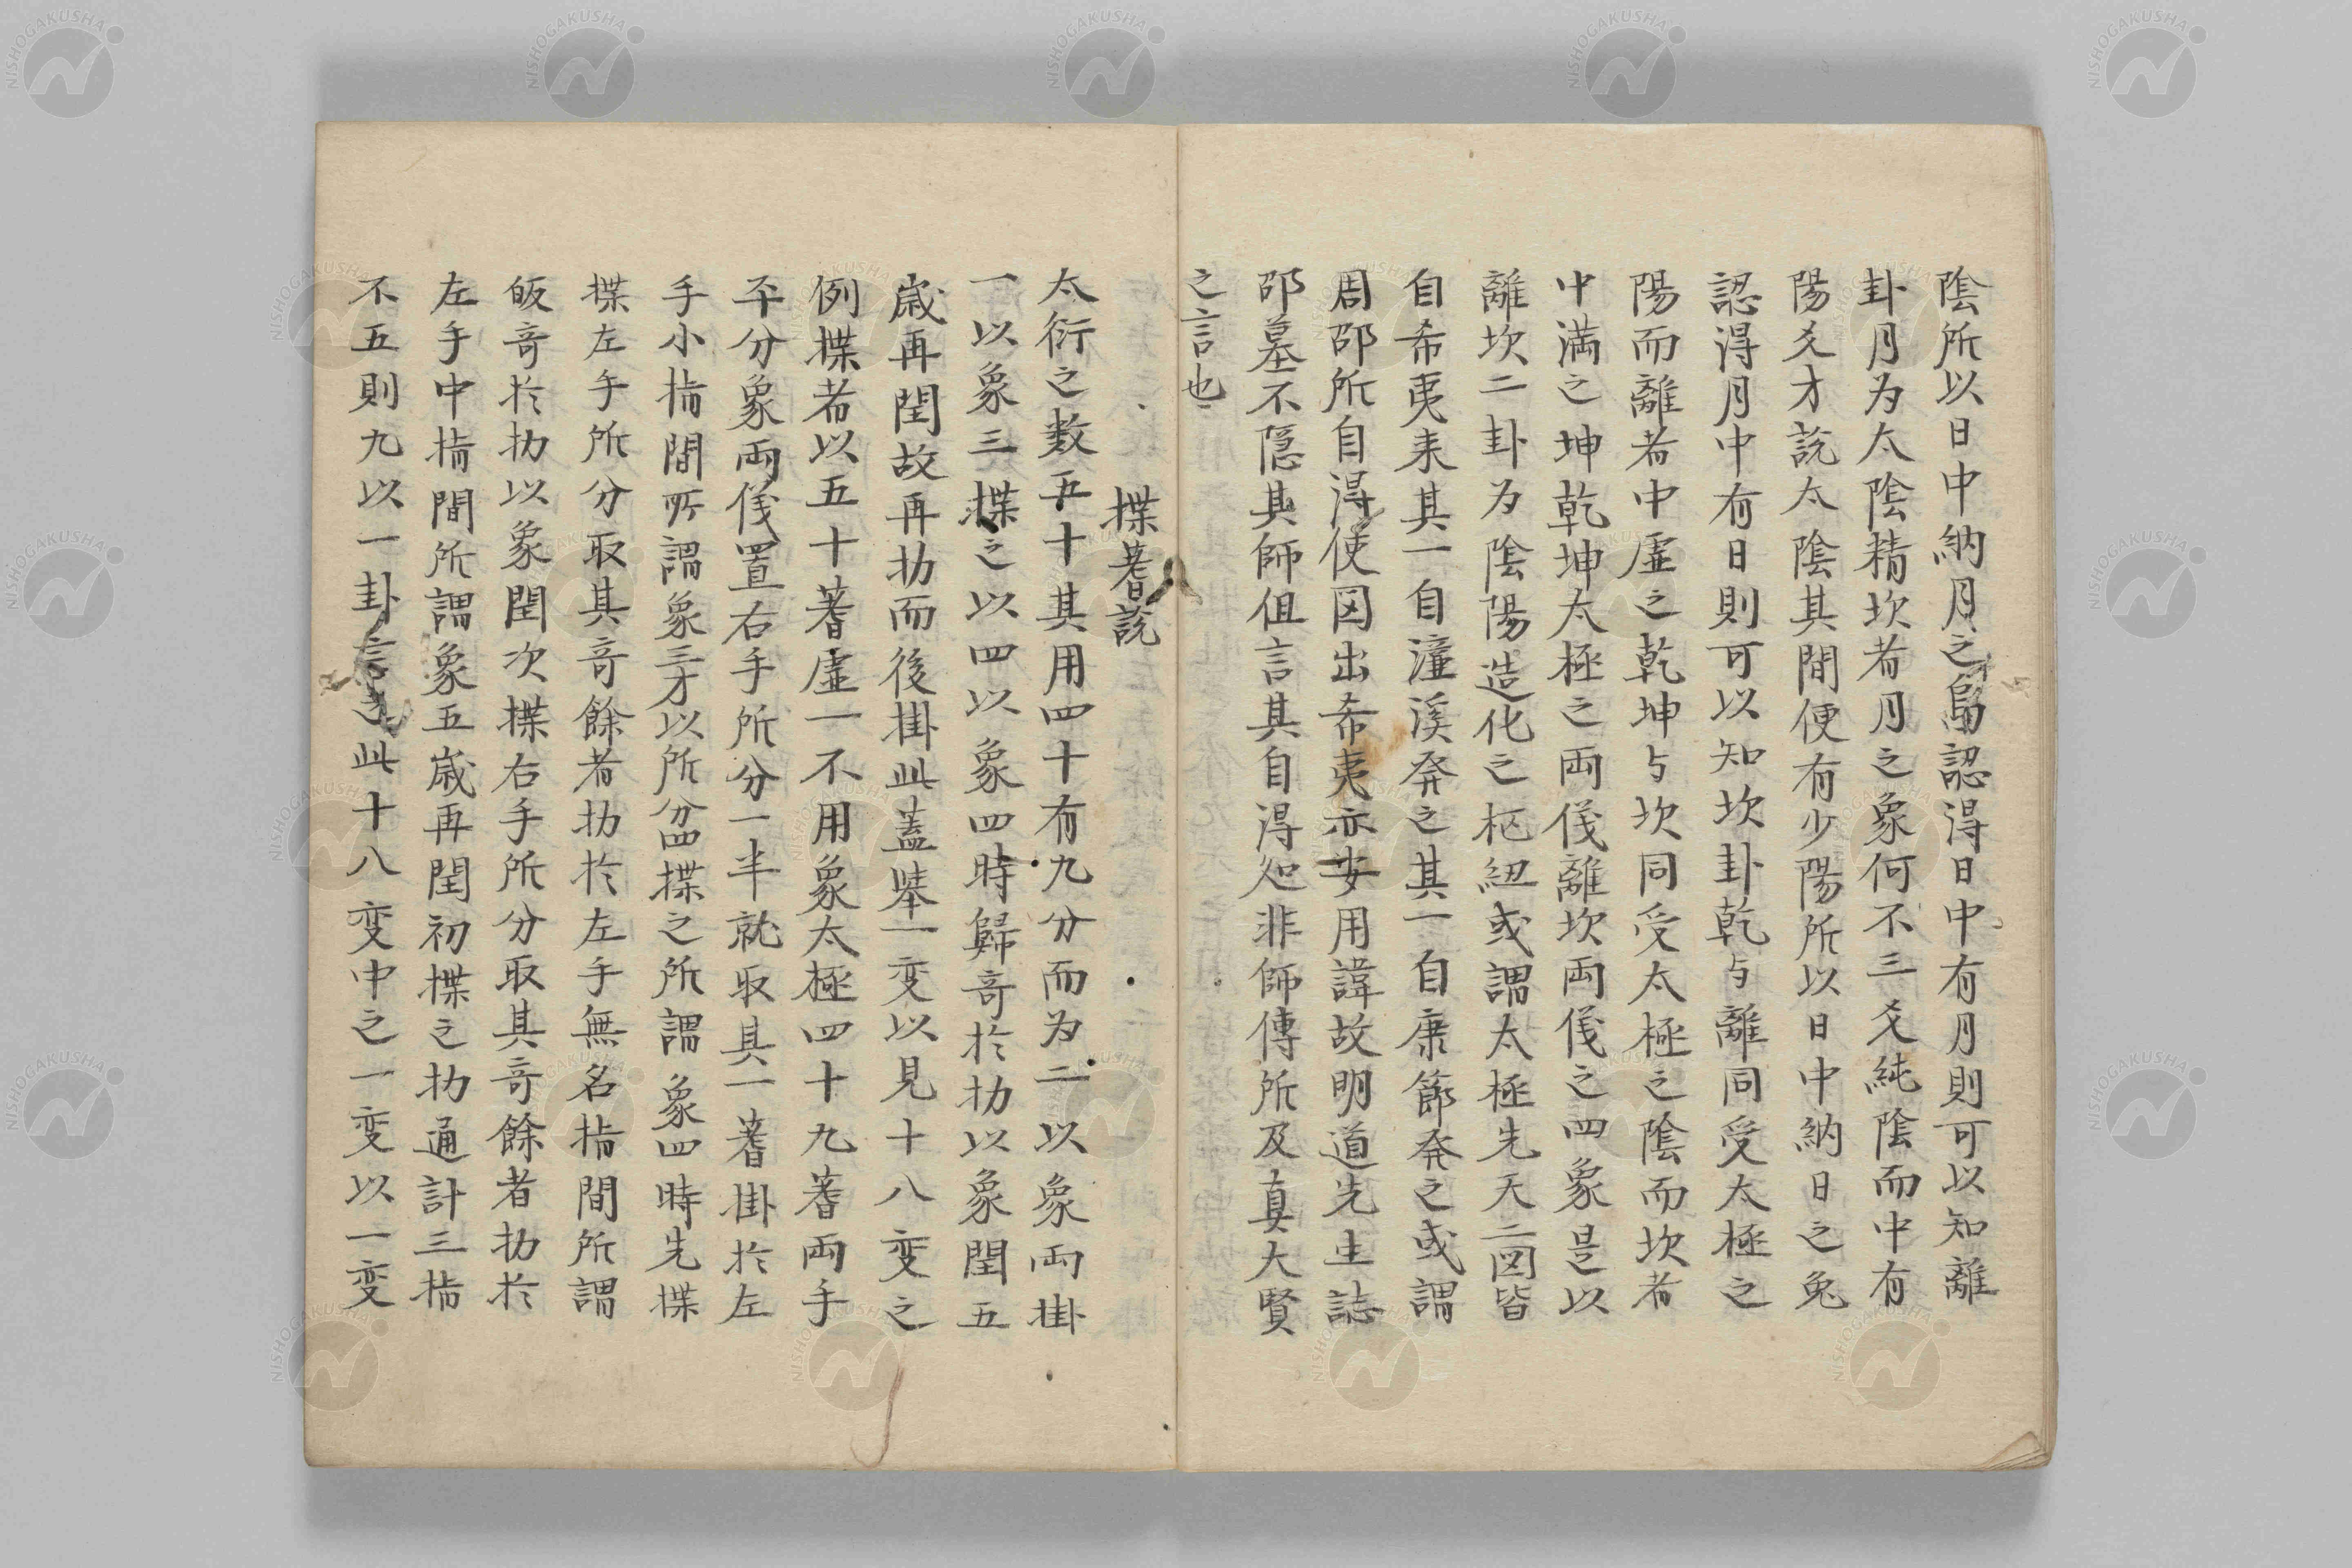 陰所以日中納月之烏認得日中有月則可以知離
卦月为太陰精坎者月之象何不三爻純陰而中有
陽爻才説太陰其間便有少陽所以日中納日之兔
認得月中有日則可以知坎卦乾与離同受太極之
陽而離者中虚之乾坤与坎同受太極之陰而坎者
中満之坤乾坤太極之両儀離坎両儀之四象是以
離坎二卦为陰陽造化之枢紐或謂太極先天二図皆
自希夷来其一自濂溪発之其一自康節発之或謂
周邵所自得使図出希夷亦安用諱故明道先生誌
邵墓不隠其師但言其自得処非師傳所及真大賢
之言也
揲蓍説
太衍之数五十其用四十有九分而为二以象両掛
一以象三揲之以四以象四時歸竒扵扐以象閏五
歳再閏故再扐而後掛此蓋挙一変以見十八変之
例揲者以五十蓍虚一不用象太極四十九蓍両手
平分象両儀置右手所分一半就取其一蓍掛扵左
手小指間所謂象三才以所分四揲之所謂象四時先揲
揲左手所分取其竒餘者扐扵左手無名指間所謂
皈竒扵扐以象閏次揲右手所分取其竒餘者扐扵
左手中指間所謂象五歳再閏初揲之扐通計三指
不五則九以一卦言此十八変中之一変以一変
NISHOGAKUSHA